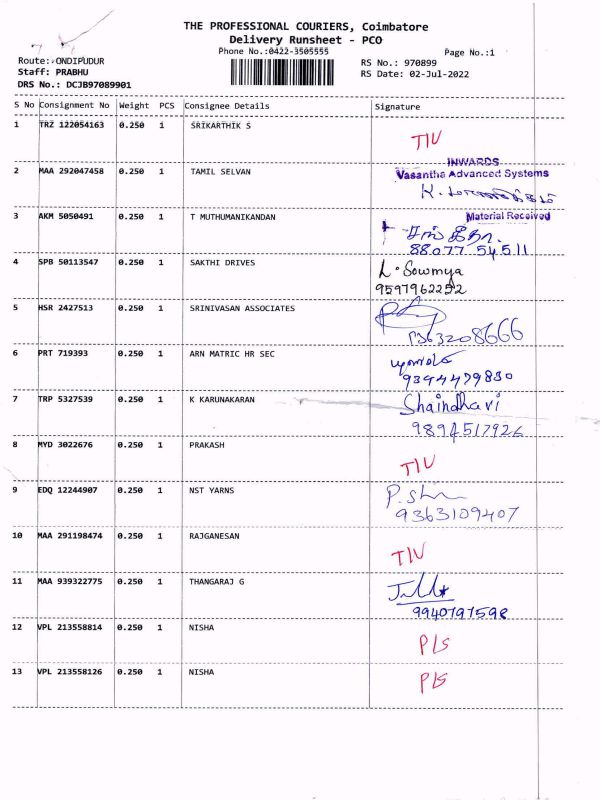 THE PROFESSIONAL COURIERS, Coimbatore
Delivery Runsheet - PCO
Phone No.:0422-3505555
Page No.:1
Route: ONDIPUDUR
RS No.: 970899
Staff: PRABHU
RS Date: 02-Jul-2022
DRS No.: DCJB97089901
S No Consignment No Weight PCS Consignee Details Signature
1 TRZ 122054163 0.250 1 SRIKARTHIK S
TIV
INWARDS
2 MAA 292047458 0.250 1 TAMIL SELVAN Vasantha Advanced Systems
3 AKM 5050491 0.250 1 T MUTHUMANIKANDAN Material Received
88077 54511
4 SPB 50113547 0.250 1 SAKTHI DRIVES L. Sowmya
9597962252
5 HSR 2427513 0.250 1 SRINIVASAN ASSOCIATES
6 PRT 719393 0.250 1 ARN MATRIC HR SEC
9394479830
7 TRP 5327539 0.250 1 K KARUNAKARAN Shaindhavi
9894517926
8 MYD 3022676 0.250 1 PRAKASH
TIV
9 EDQ 12244907 0.250 1 NST YARNS
9363109407
10 MAA 291198474 0.250 1 RAJGANESAN
TIV
11 MAA 939322775 0.250 1 THANGARAJ G
9940797598
12 VPL 213558814 0.250 1 NISHA
P/S
13 VPL 213558126 0.250 1 NISHA
P/S